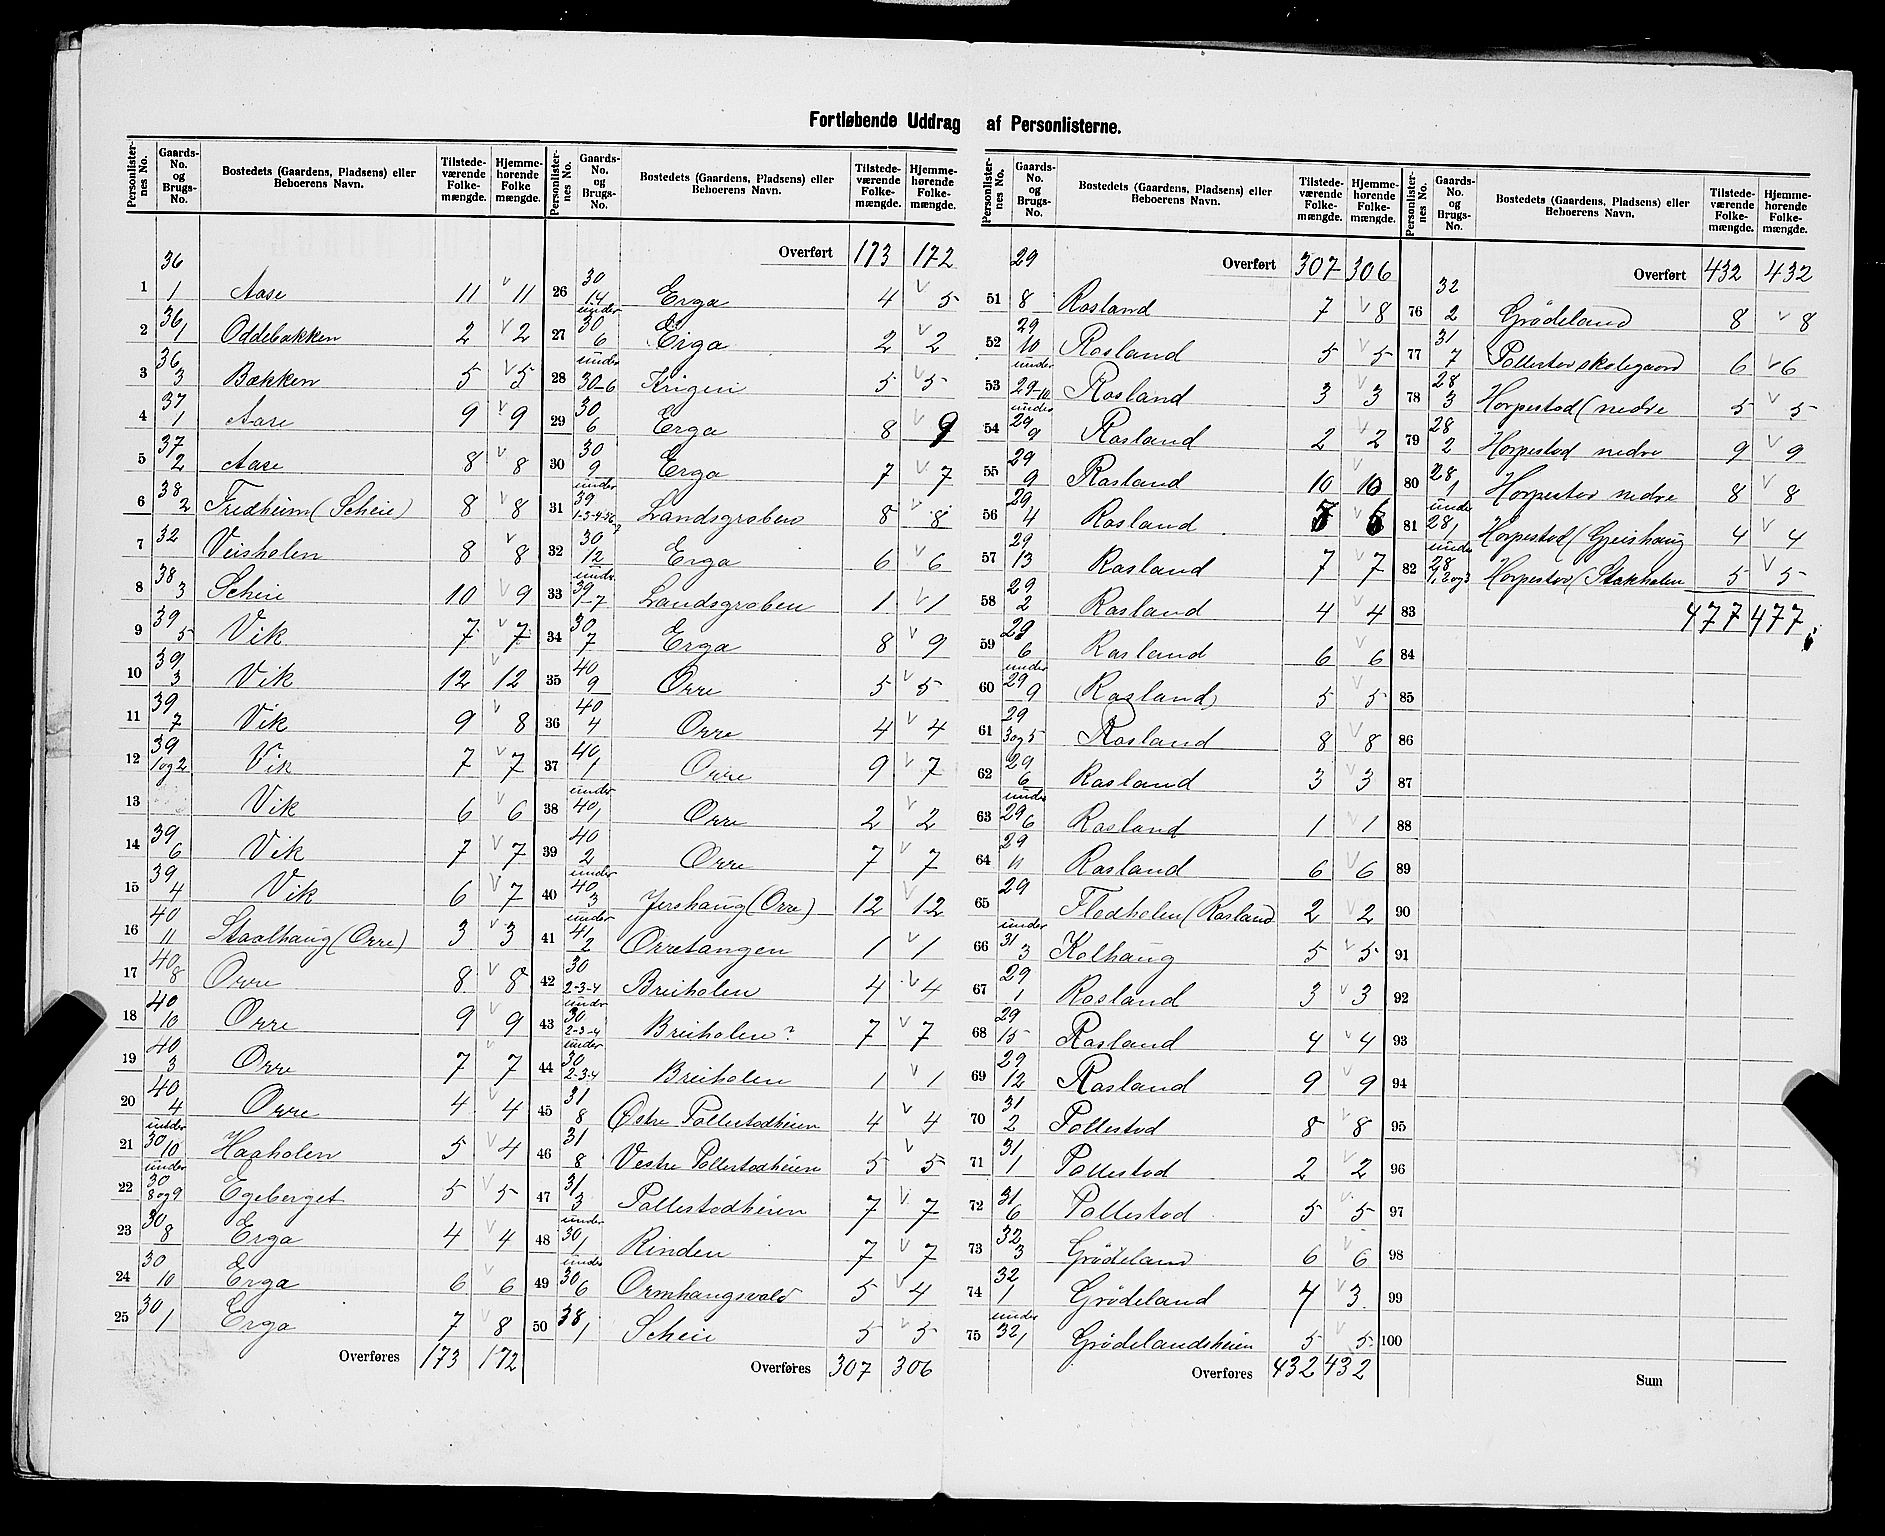 Fortløbende Uddrag af Personlisterne.
Personlisternes No. | Gaards-No. og Brugs-No. | Bostedets (Gaardens, Pladsens) eller Beboerens Navn. | Tilstedeværende Folkemængde. | Hjemmehørende Folkemængde.
1 | 36 1 | Aase | 11 | v 11
2 | 36 1 | Oddebakken | 2 | v 2
3 | 36 3 | Bækken | 5 | v 5
4 | 37 1 | Aase | 9 | v 9
5 | 37 2 | Aase | 8 | v 8
6 | 38 2 | Fredheim (Scheie) | 8 | v 8
7 | 32 | Veisholen | 8 | v 8
8 | 38 3 | Scheie | 10 | v 9
9 | 39 5 | Vik | 7 | v 7
10 | 39 3 | Vik | 12 | v 12
11 | 39 7 | Vik | 9 | v 8
12 | 39 1 og 2 | Vik | 7 | v 7
13 | Vik | 6 | v 6
14 | 39 6 | Vik | 7 | v 7
15 | 39 4 | Vik | 6 | v 7
16 | 40 11 | Staalhaug (Orre) | 3 | v 3
17 | 40 8 | Orre | 8 | v 8
18 | 40 10 | Orre | 9 | v 9
19 | 40 3 | Orre | 7 | v 7
20 | 40 4 | Orre | 4 | v 4
21 | under 30 10 | Haaholen | 5 | v 4
22 | under 30 8 og 9 | Egeberget | 5 | v 5
23 | 30 8 | Erga | 4 | v 4
24 | 30 10 | Erga | 6 | v 6
25 | 30 1 | Erga | 7 | v 8
Overføres | 173 | 172
Personlisternes No. | Gaards-No. og Brugs-No. | Bostedets (Gaardens, Pladsens) eller Beboerens Navn. | Tilstedeværende Folkemængde. | Hjemmehørende Folkemængde.
Overført | 173 | 172
26 | 30 14 | Erga | 4 | v 5
27 | under 30 6 | Erga | 2 | v 2
28 | under 30-6 | Krigeri | 5 | v 5
29 | 30 6 | Erga | 8 | v 9
30 | 30 9 | Erga | 7 | v 7
31 | under 39 | Landsgraben | 8 | v 8
32 | 30 12 | Erga | 6 | v 6
33 | under 39 1-7 | Landsgraben | 1 | v 1
34 | 30 7 | Erga | 8 | v 9
35 | 40 9 | Orre | 5 | v 5
36 | 40 4 | Orre | 4 | v 4
37 | 40 1 | Orre | 9 | v 7
38 | under 40 1 | Orre | 2 | v 2
39 | 40 2 | Orre | 7 | v 7
40 | under 40 3 | Jershaug (Orre) | 12 | v 12
41 | under 41 2 | Orretangen | 1 | v 1
42 | 30 2-3-4 | Breiholen | 4 | v 4
43 | under 30 2-3-4 | Breiholen? | 7 | v 7
44 | under 30 2-3-4 | Breiholen | 1 | v 1
45 | 31 8 | Østre Pollestadheien | 4 | v 4
46 | 31 8 | Vestre Pollestadheien | 5 | v 5
47 | 31 3 | Pollestadheien | 7 | v 7
48 | under 30 1 | Rinden | 7 | v 7
49 | under 30 6 | Ormhaugsvold | 5 | v 4
50 | 38 1 | Scheie | 5 | v 5
Overføres | 307 | 306
Personlisternes No. | Gaards-No. og Brugs-No. | Bostedets (Gaardens, Pladsens) eller Beboerens Navn. | Tilstedeværende Folkemængde. | Hjemmehørende Folkemængde.
Overført | 307 | 306
51 | 29 8 | Rosland | 7 | v 8
52 | 29 10 | Rosland | 5 | v 5
53 | under 29-10 | Rosland | 3 | v 3
54 | under 29 9 | Rosland | 2 | v 2
55 | 29 9 | Rosland | 10 | v 10
56 | 29 4 | Rosland | v
57 | 29 13 | Rosland | 7 | v 7
58 | 29 2 | Rosland | 4 | v 4
59 | 29 6 | Rosland | 6 | v 6
60 | under 29 9 | (Rosland) | 5 | v 5
61 | 29 3 og 5 | Rosland | 8 | v 8
62 | 29 6 | Rosland | 3 | v 3
63 | under 29 6 | Rosland | 1 | v 1
64 | 29 11 | Rosland | 6 | v 6
65 | 29 | Flodholen (Rosland | 2 | v 2
66 | under 31 3 | Kolhaug | 5 | v 5
67 | 29 1 | Rosland | 3 | v 3
68 | 29 15 | Rosland | 4 | v 4
69 | 29 12 | Rosland | 9 | v 9
70 | 31 2 | Pollestad | 8 | v 8
71 | 31 1 | Pollestad | 2 | v 2
72 | 31 6 | Pollestad | 5 | v 5
73 | 32 3 | Grödeland | 6 | v 6
74 | 32 1 | Grödeland | 4 | v 3
75 | under 32 1 | Grödelandsheien | 5 | v 5
Overføres | 432 | 432
Personlisternes No. | Gaards-No. og Brugs-No. | Bostedets (Gaardens, Pladsens) eller Beboerens Navn. | Tilstedeværende Folkemængde. | Hjemmehørende Folkemængde.
Overført | 432 | 432
76 | 32 2 | Grödeland | 8 | v 8
77 | 31 7 | Pollestad skolegaard | 6 | v 6
78 | 28 3 | Horpestad (nedre | 5 | v 5
79 | 28 2 | Horpestad nedre | 9 | v 9
80 | 28 1 | Horpestad nedre | 8 | v 8
81 | under 28 1 | Horpestad (Geishaug | 4 | v 4
82 | under 28 1, 2 og 3 | Horpestad (Stokholen | 5 | v 5
83 | 477 | 477
84
85
86
87
88
89
90
91
92
93
94
95
96
97
98
99
100
Sum